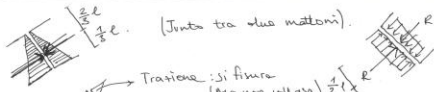 2/3 l
1/3 l.
(Junto tra due mattoni).
R
R
Trazione: si fessura
1/3 l